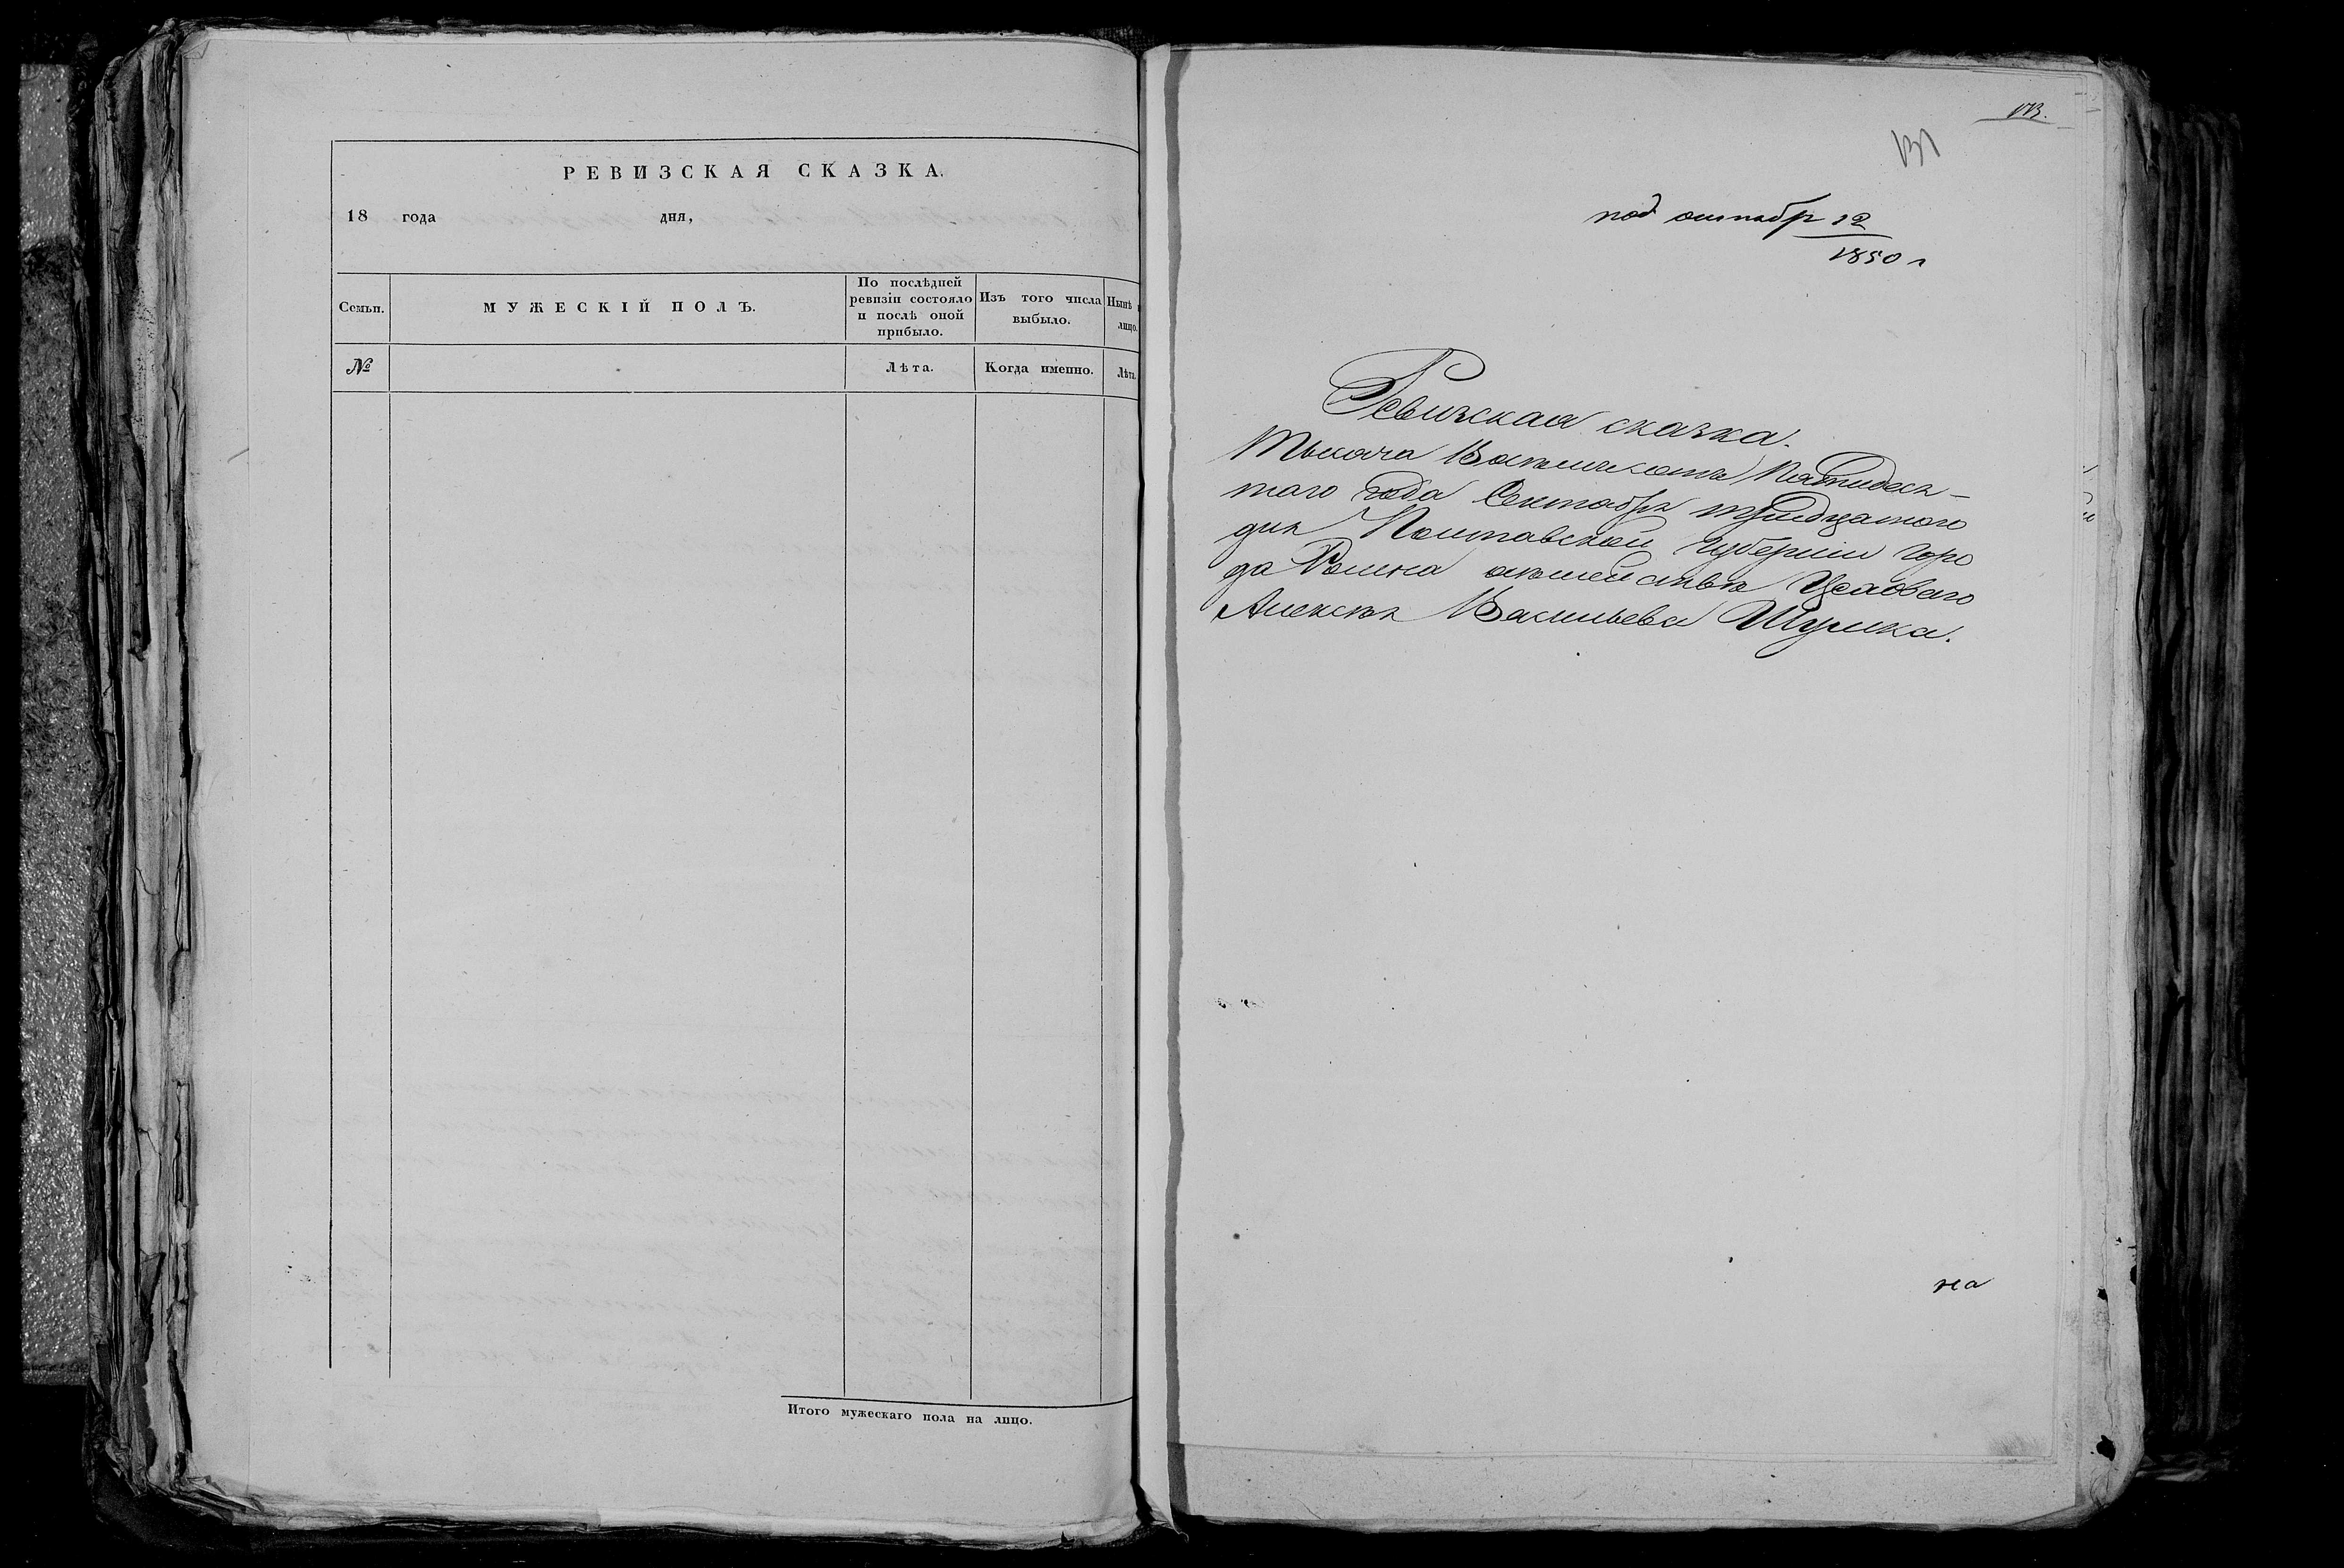 РЕВИЗСКАЯ СКАЗКА.
18 года дня,
Семьи.
МУЖЕСКІЙ ПОЛЪ.
По послѣдней
ревизіи состояло
и послѣ оной
прибыло.
Изъ того числа
выбыло.
Нынѣ
лицо.
№
Лѣта.
Когда именно.
Лѣта.
Итого мужескаго пола на лицо.
173.
131
под октябр 12
1850 г
Ревизская сказка.
Тысяча Восемьсотъ Пятидеся-
таго года Сентября тридцатого
дня Полтавской губерніи горо
да Ромна о семействѣ Цехового
Алексѣя Васильева Шулика.
на